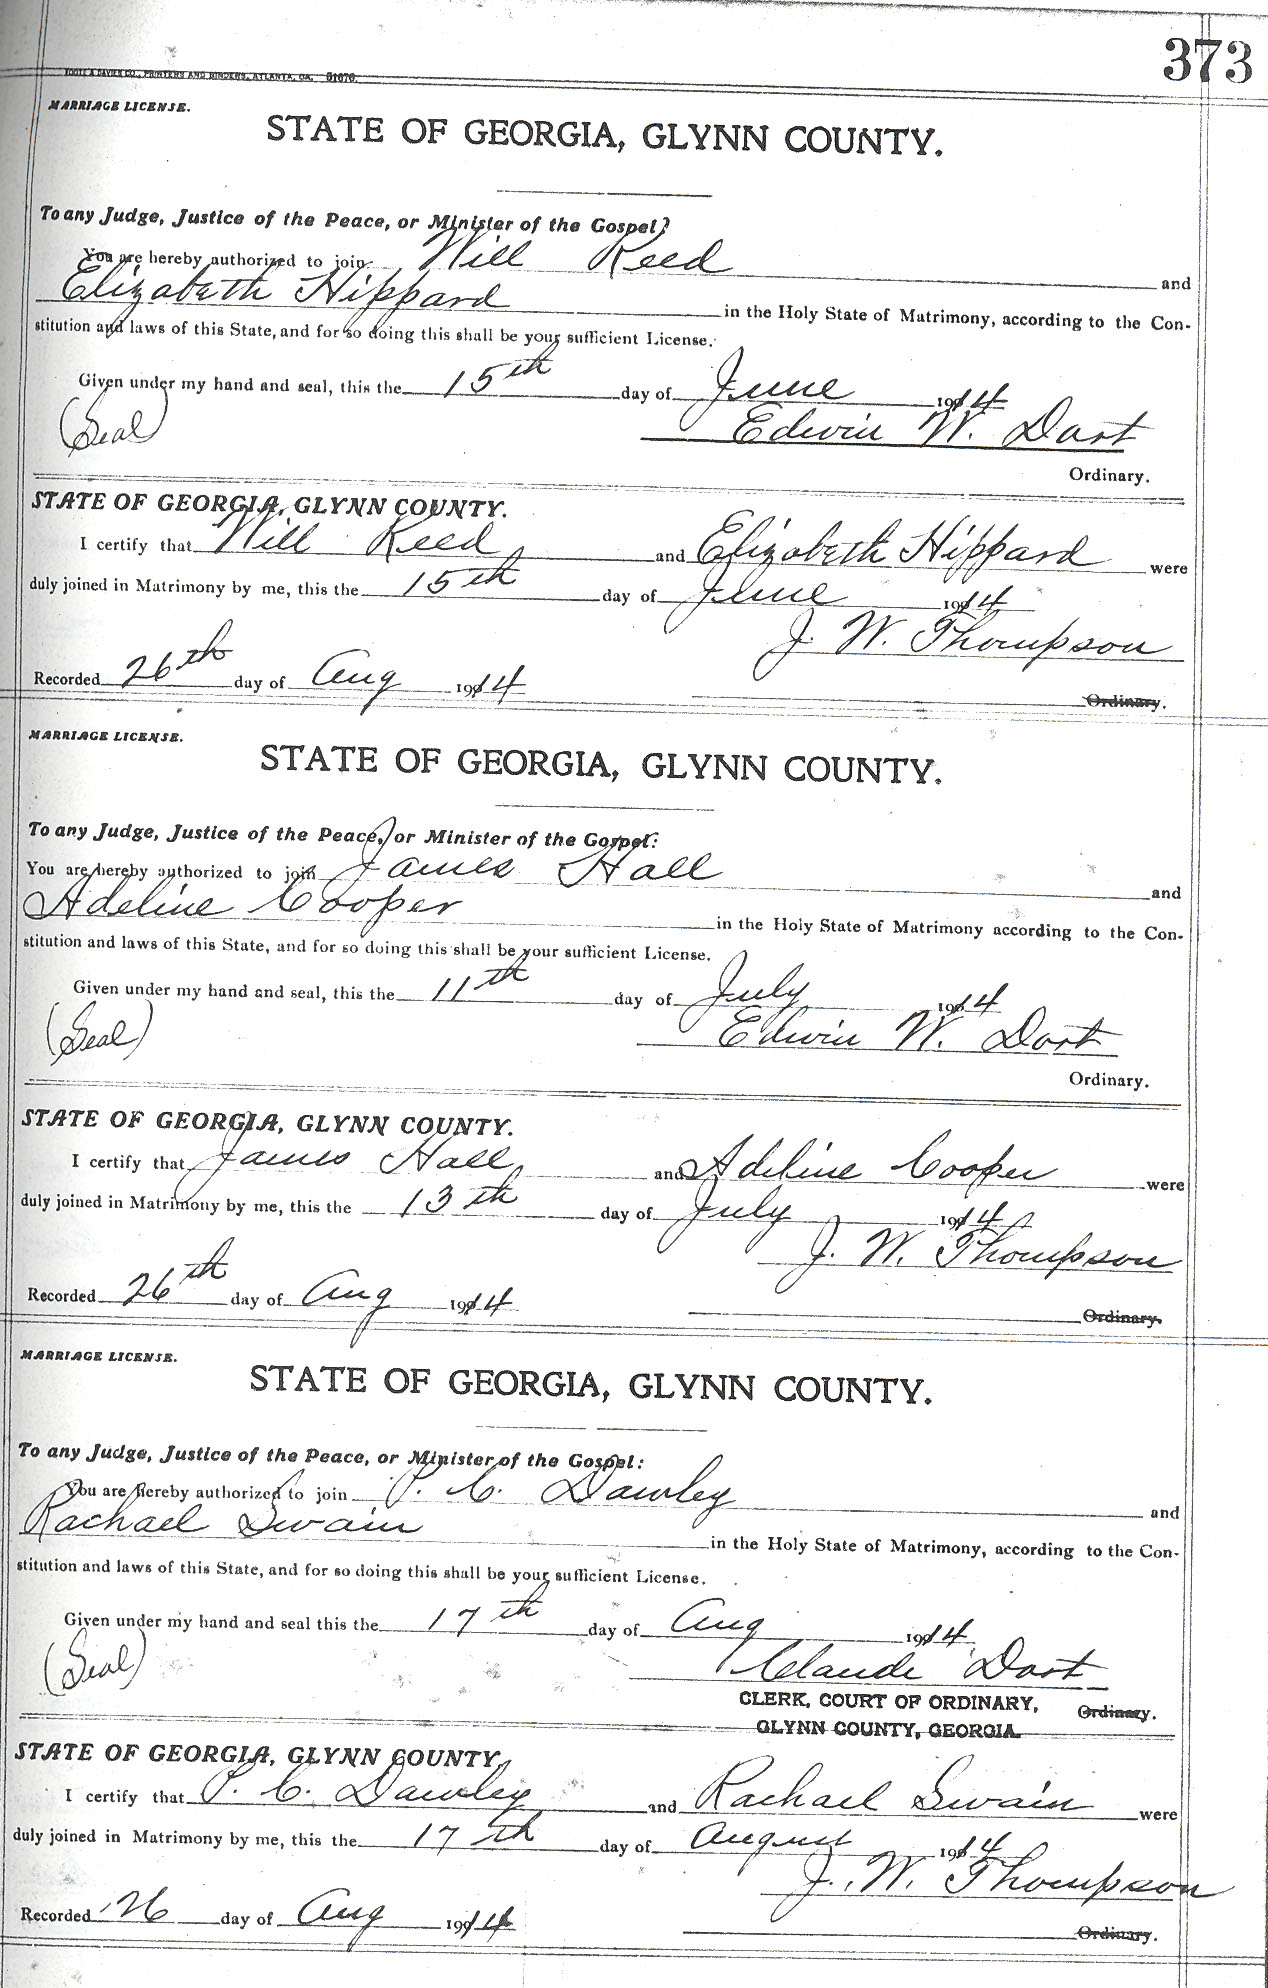 373
FOOTE & DAVIES CO., PRINTERS AND BINDERS, ATLANTA, GA. 51676.
MARRIAGE LICENSE.
STATE OF GEORGIA, GLYNN COUNTY.
To any Judge, Justice of the Peace, or Minister of the Gospel:
You are hereby authorized to join Will Reed and
Elizabeth Hippard in the Holy State of Matrimony, according to the Con-
stitution and laws of this State, and for so doing this shall be your sufficient License.
Given under my hand and seal, this the 15th day of June 1914
(Seal) Edwin W. Dart
Ordinary.
STATE OF GEORGIA, GLYNN COUNTY.
I certify that Will Reed and Elizabeth Hippard were
duly joined in Matrimony by me, this the 15th day of June 1914
J. W. Thompson
Recorded 26th day of Aug 1914
Ordinary.
MARRIAGE LICENSE.
STATE OF GEORGIA, GLYNN COUNTY.
To any Judge, Justice of the Peace, or Minister of the Gospel:
You are hereby authorized to join James Hall and
Adeline Cooper in the Holy State of Matrimony according to the Con-
stitution and laws of this State, and for so doing this shall be your sufficient License.
Given under my hand and seal, this the 11th day of July 1914
(Seal) Edwin W. Dart
Ordinary.
STATE OF GEORGIA, GLYNN COUNTY.
I certify that James Hall and Adeline Cooper were
duly joined in Matrimony by me, this the 13th day of July 1914
J. W. Thompson
Recorded 26th day of Aug 1914
Ordinary.
MARRIAGE LICENSE.
STATE OF GEORGIA, GLYNN COUNTY.
To any Judge, Justice of the Peace, or Minister of the Gospel:
You are hereby authorized to join P. C. Dawley and
Rachael Swain in the Holy State of Matrimony, according to the Con-
stitution and laws of this State, and for so doing this shall be your sufficient License.
Given under my hand and seal this the 17th day of Aug 1914
(Seal) Claude Dart
CLERK, COURT OF ORDINARY, Ordinary.
GLYNN COUNTY, GEORGIA.
STATE OF GEORGIA, GLYNN COUNTY.
I certify that P. C. Dawley and Rachael Swain were
duly joined in Matrimony by me, this the 17th day of August 1914
J. W. Thompson
Recorded 26 day of Aug 1914
Ordinary.